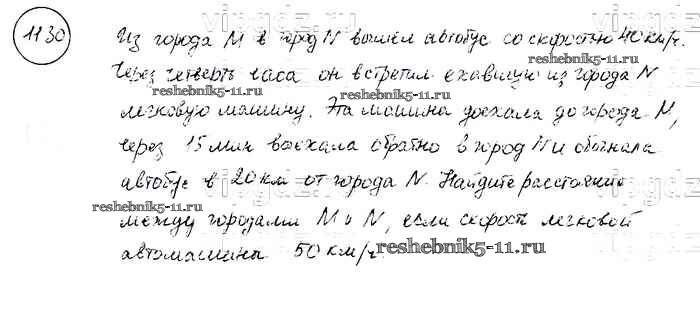 1130
Из города M в город N вышел автобус со скоростью 40 км/ч.
Через четверть часа он встретил ехавшую из города N
reshebnik5-11.ru
reshebnik5-11.ru
легковую машину. Эта машина доехала до города M,
через 15 мин выехала обратно в город N и обогнала
автобус в 20 км от города N. Найдите расстояние
reshebnik5-11.ru
между городами M и N, если скорость легковой
reshebnik5-11.ru
автомашины 50 км/ч.